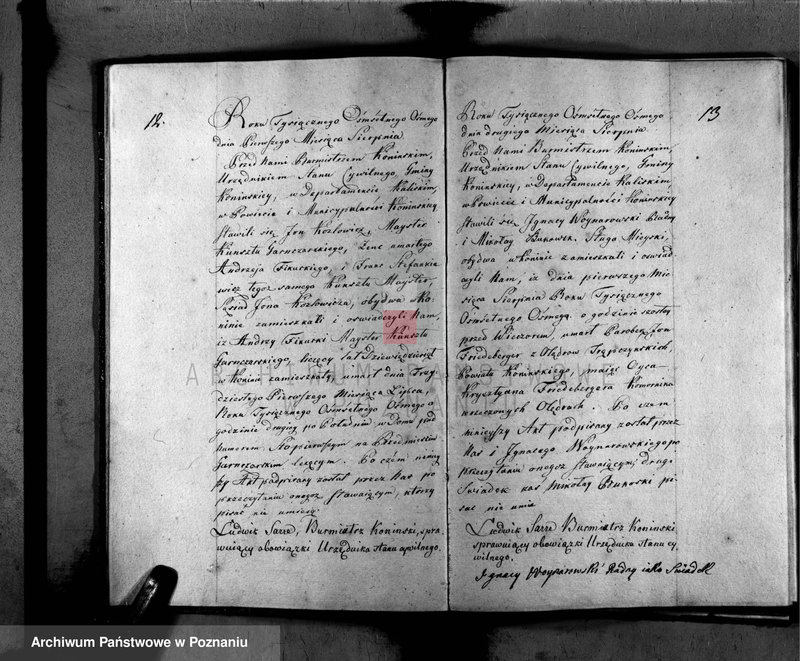 12.
Roku Tysiącznego Ośmsetnego Osmego
dnia Pierwszego Miesiąca Sierpnia
Przed Nami Burmistrzem Konińskim,
Urzędnikiem Stanu Cywilnego, Gminy
Konińskiey, w Departamencie Kaliskim,
w Powiecie i Municypalności Konińskiey
stawili się Jan Kozłowicz, Mayster
Kunsztu Garncarskiego, Zięć umarłego
Andrzeja Fikurskiego, i Franc Stefankie
wicz tegoż samego Kunsztu Mayster,
Sąsiad Jana Kozłowicza, obydwa w Ko-
ninie zamieszkali i oswiadczyli Nam,
iż Andrzy Fikurski Mayster Kunsztu
Garncarskiego, liczący lat Dziewięćdziesiąt
w Koninie zamieszkały, umarł dnia Trzy
dziestego Pierwszego Miesiąca Lipca,
Roku Tysiącznego Osmsetnego Osmego o
godzinie drugiey po Południu w Domu pod
Numerem Sto pierwszym na Przedmieściu
Garncarskim leżącym. Po czém niniey
szy Akt podpisany został przez Nas po
przeczytaniu onegoż Stawaiącym, którzy
pisać nie umieią.
Ludwik Sarre, Burmistrz Koninski, spra
wuiący obowiązki Urzędnika stanu cywilnego.
13
Roku Tysiącznego Osmsetnego Osmego
dnia drugiego Miesiąca Sierpnia
Przed Nami Burmistrzem Koninskim,
Urzędnikiem Stanu Cywilnego, Gminy
Koninskiey, w Departamencie Kaliskim
w Powiecie i Municypalności Koninskiey
stawili się Ignacy Woynarowski Radny
i Mikołay Bukowski, Sługa Mieyski,
obydwa w Koninie zamieszkali i oswiad
czyli Nam, iż dnia pierwszego Mie
siąca Sierpnia Roku Tysiącznego
Osmsetnego Osmego, o godzinie szostey
przed Wieczorem, umarł Parobek Jan
Friedeberger z Olędrow
Powiatu Koninskiego, maiąc Oyca
Krysztyana Friedebergera Komornika
rzeczonych Olędrach. Po czem
ninieyszy Akt podpisany został przez
Nas i Ignacego Woynarowskiego po
przeczytaniu onegoż stawaiącym, drugi
Swiadek zaś Mikołay Bukowski pi-
sać nie umie
Ludwik Sarre Burmistrz Koninski
sprawuiący obowiązki Urzędnika stanu cy
wilnego.
Ignacy Woynarowski Radny iako Swiadek
Archiwum Państwowe w Poznaniu